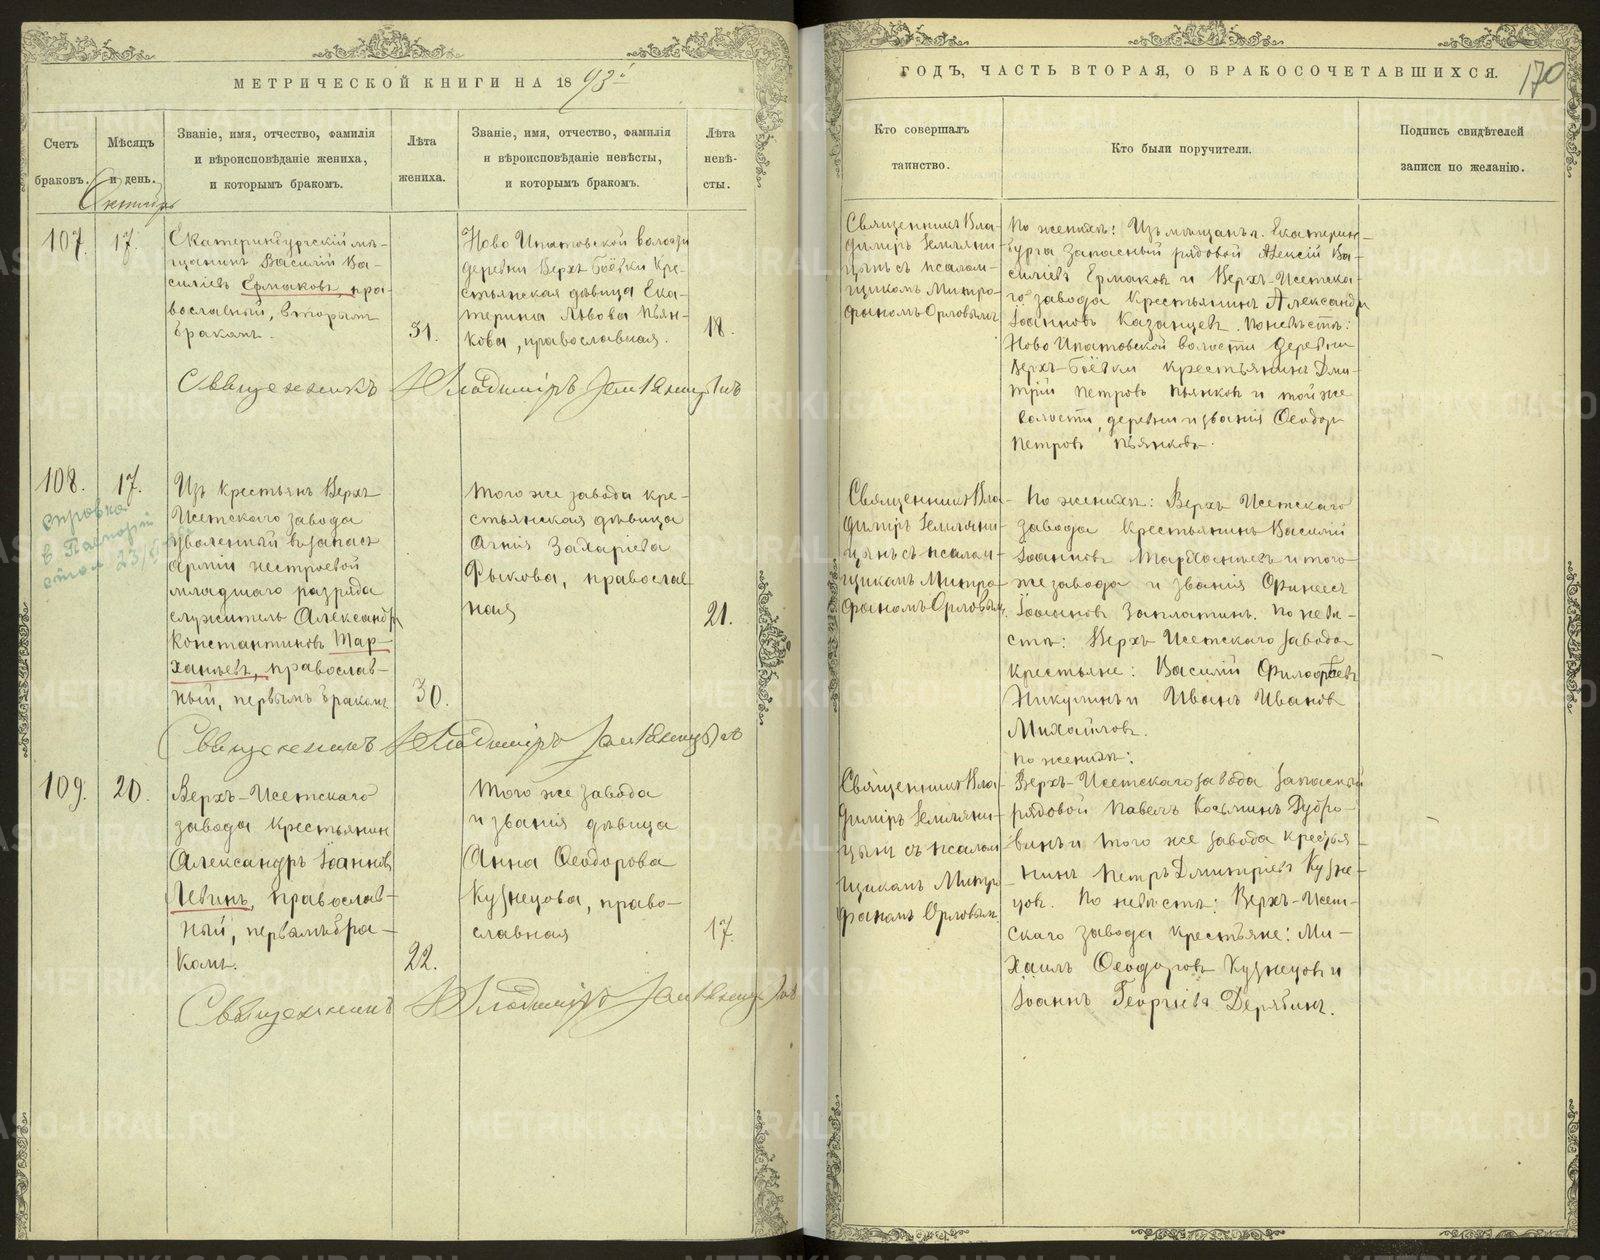 МЕТРИЧЕСКОЙ КНИГИ НА 1893й
Счетъ браковъ.
Мѣсяцъ и день.
Званіе, имя, отчество, фамилія
и вѣроисповѣданіе жениха,
и которымъ бракомъ.
Лѣта жениха.
Званіе, имя, отчество, фамилія
и вѣроисповѣданіе невѣсты,
и которымъ бракомъ.
Лѣта невѣ-
сты.
Октябрь
107.
17.
Екатеринбургскій мѣ-
щанинъ Василій Ва-
сильевъ Ермаковъ, пра-
вославный, вторымъ
бракомъ.
31.
Ново Ипатовской волости
деревни Верхъ Боёвки кре-
стьянская дѣвица Ека-
терина Львова Пьян-
кова, православная.
18.
Священникъ Владиміръ Земляницынъ
108.
17.
справка
в Паспорт
стол 23/
Изъ крестьянъ Верхъ
Исетскаго завода
уволенный въ запасъ
арміи нестроевой
младшаго разряда
служитель Александръ
Константиновъ Тар-
ханѣевъ, православ-
ный, первымъ бракомъ
30.
того же завода кре-
стьянская дѣвица
Агнія Захаріева
Рыкова, православ
ная
21.
Священникъ Владиміръ Земляницынъ
109.
20.
Верхъ-Исетскаго
завода крестьянин
Александръ Іоанновъ
Левинъ, православ-
ный, первымъ бра-
комъ.
22.
того же завода
и званія дѣвица
Анна Ѳеодорова
Кузнецова, право-
славная
17.
Священникъ Владиміръ Земляницынъ
ГОДЪ, ЧАСТЬ ВТОРАЯ, О БРАКОСОЧЕТАВШИХСЯ.
170
Кто совершалъ
таинство.
Кто были поручители.
Подпись свидѣтелей
записи по желанію.
Священникъ Вла-
диміръ Земляни-
цынъ съ псалом-
щикомъ Митро-
фаномъ Орловымъ
По женихѣ: Изъ мѣщанъ г. Екатерин-
бурга запасный рядовой Алексій Ва-
сильевъ Ермаковъ и Верхъ-Исетска-
го завода крестьянинъ Александръ
Іоанновъ Казанцевъ. По невѣстѣ:
Ново Ипатовской волости деревни
Верхъ-Боёвки крестьянинъ Дми-
трій Петровъ Пьянковъ и той же
волости, деревни и званія Ѳеодоръ
Петровъ Пьянковъ.
Священникъ Вла-
диміръ Земляни-
цынъ съ псалом-
щикомъ Митро-
фаномъ Орловым
По женихѣ: Верхъ Исетскаго
завода крестьянинъ Василій
Іоанновъ Тарханѣевъ и того
же завода и званія Финеесъ
Іоанновъ Заплатинъ. По невѣ-
стѣ: Верхъ Исетскаго завода
крестьяне: Василій Филоѳеевъ
Никулинъ и Иванъ Ивановъ
Михайловъ.
По женихѣ:
Священникъ Вла-
диміръ Земляни-
цынъ съ псалом
щикомъ Митро
фаномъ Орловым.
Верхъ-Исетскаго завода запасный
рядовой Павелъ Козьминъ Дубро-
винъ и того же завода крестья-
нинъ Петръ Дмитріевъ Кузне-
цовъ. По невѣстѣ: Верхъ-Исет-
скаго завода крестьяне: Ми-
хаилъ Ѳеодоровъ Кузнецовъ и
Іоаннъ Георгіевъ Дерябинъ.
METRIKI.GASO-URAL.RU